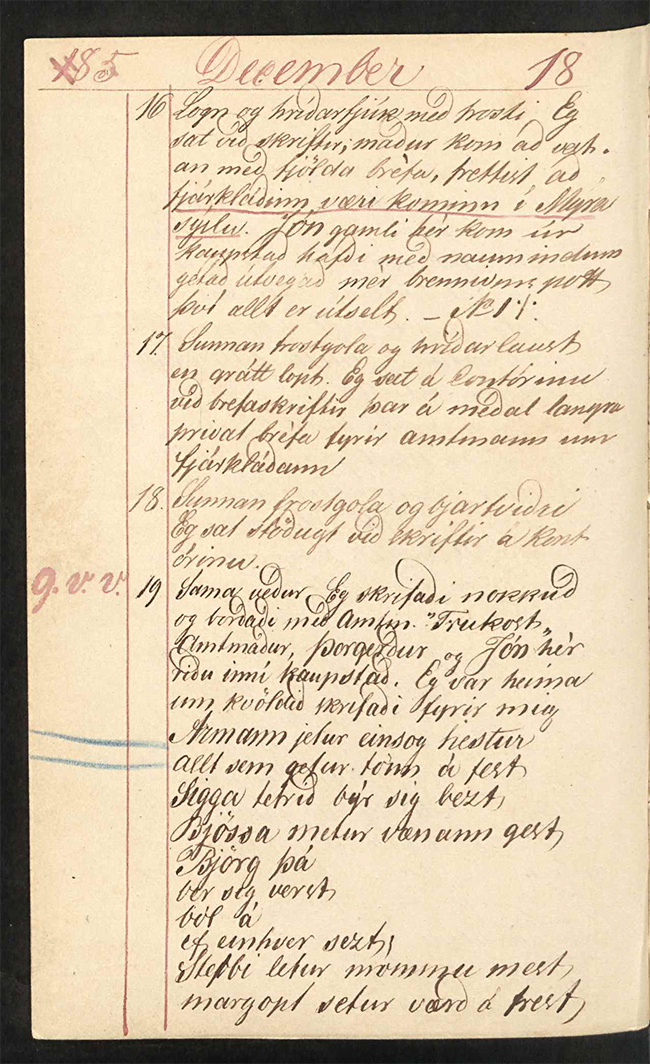 185 December 18
16 Logn og hríðarfjúk með frosti Eg
sat við skriftir; maður kom að vest-
an með fjölda brefa, frettist að
fjárkláðinn væri kominn í Mýra
sýslu. Jón gamli hér kom úr
kaupstað hafði með naumindum
getað útvegað mér brennivíns pott
því allt er útselt. –
17. Sunnan frostgola og hríðarlaust
en grátt lopt. Eg sat á Contórinu
við brefaskriftir þar á meðal langra
privat bréfa fyrir amtmann um
fjárkláðann
18. Sunnan frostgola og bjartviðri
Eg sat stöðugt við skriftir á Kont
órinu.
9. v. v. 19 Sama veður. Eg skrifaði nokkuð
og borðaði með Amtm. "Frukost"
Amtmaður, Þorgerður og Jón hér
riðu inní kaupstað. Eg var heima
um kvöldið skrifaði fyrir mig
Armann jetur einsog hestur
allt sem getur tönn á fest,
Sigga tetrið býr sig bezt,
Bjössa metur vænann gest,
Björg þá
ber sig verst,
ból á
ef einhver sezt;
Stebbi letur mömmu mest,
margopt setur værð á frest,